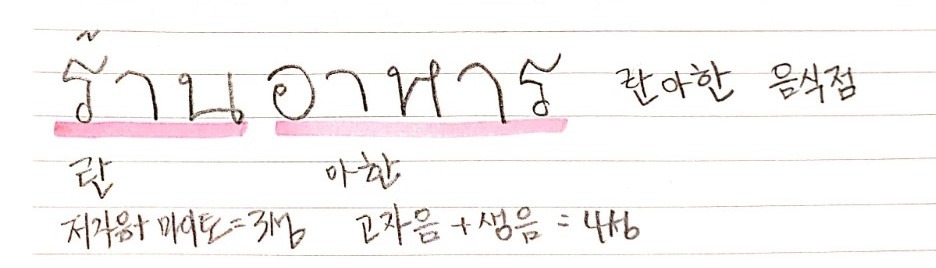 ร้านอาหาร 란아한 음식점
란 아한
저자음+마이토=3성 고자음+생음=4성